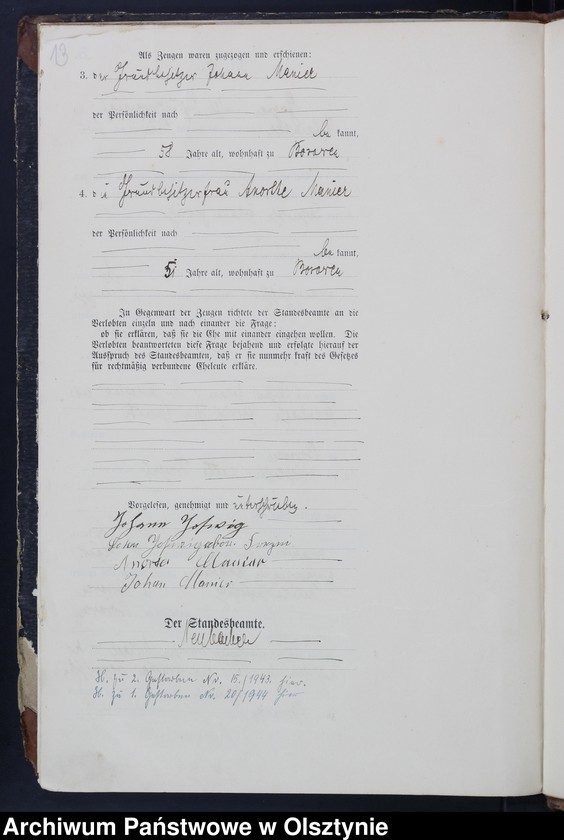 13
Als Zeugen waren zugezogen und erschienen:
3. der Grundbesitzer Johann Manier
der Persönlichkeit nach
be kannt,
58 Jahre alt, wohnhaft zu
4. die Grundbesitzerfrau Manier
der Persönlichkeit nach
be kannt,
51 Jahre alt, wohnhaft zu
In Gegenwart der Zeugen richtete der Standesbeamte an die
Verlobten einzeln und nach einander die Frage:
ob sie erklären, daß sie die Ehe mit einander eingehen wollen. Die
Verlobten beantworteten diese Frage bejahend und erfolgte hierauf der
Ausspruch des Standesbeamten, daß er sie nunmehr kraft des Gesetzes
für rechtmäßig verbundene Eheleute erkläre.
Vorgelesen, genehmigt und unterschrieben.
Johann
Johan Manier
Der Standesbeamte.
H. zu 2. Gestorben Nr. 15./1943. hier.
H. zu 1. Gestorben Nr. 20/1944 hier
Archiwum Państwowe w Olsztynie